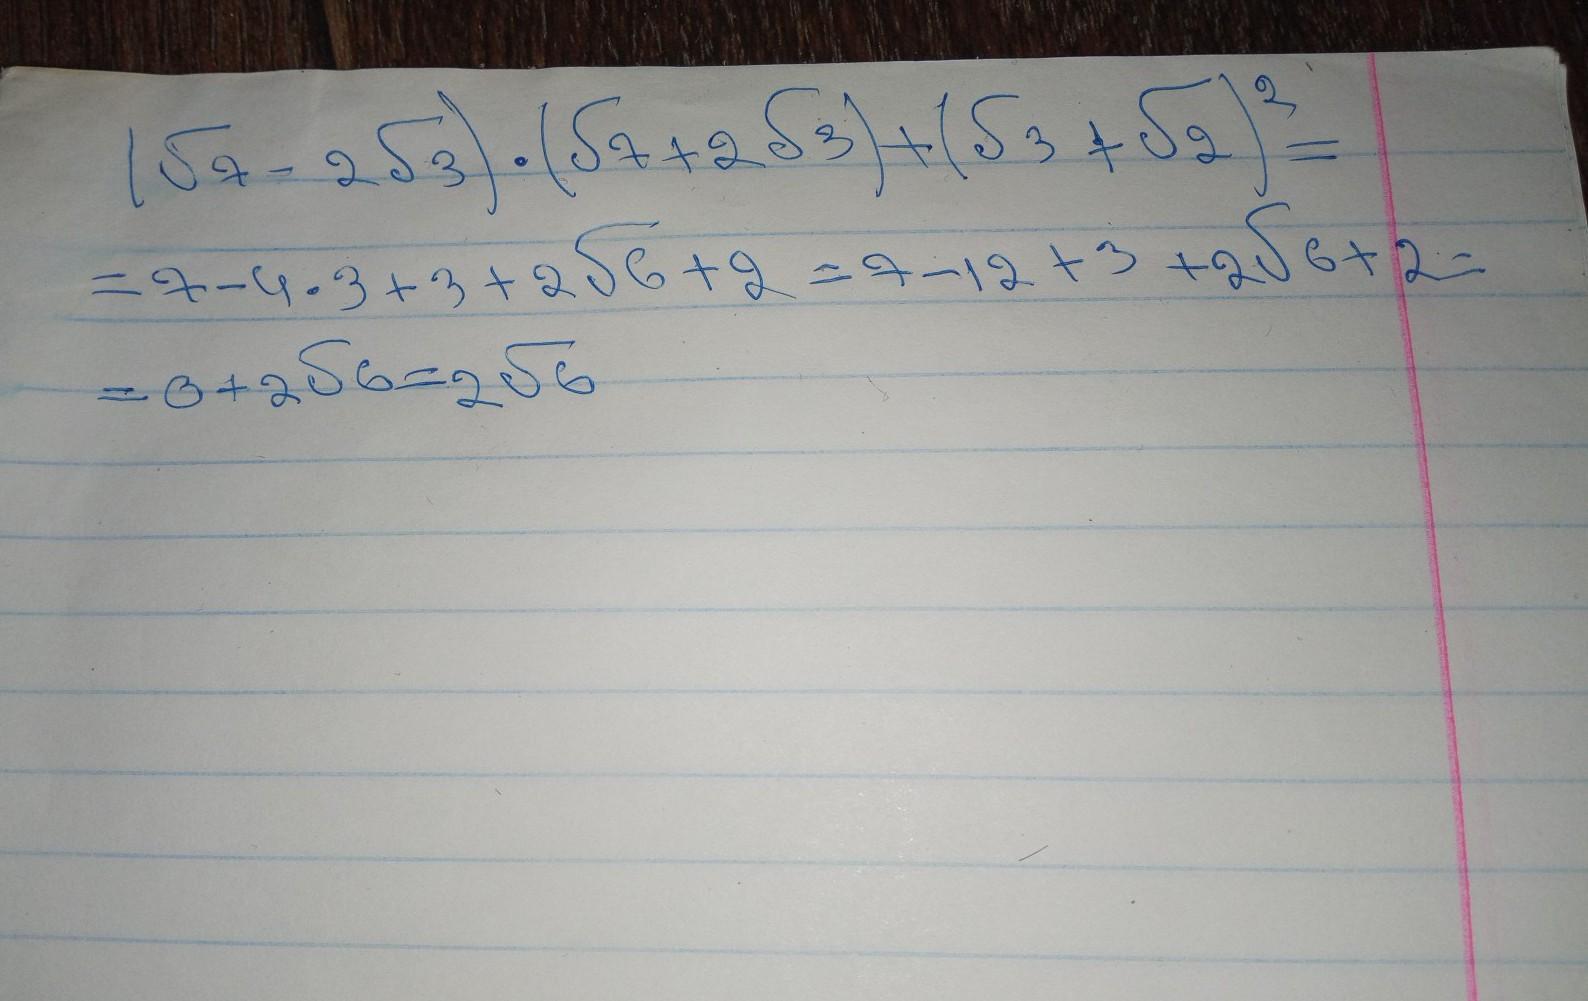 (√7 - 2√3)·(√7+2√3)+(√3+√2)²=
=7-4·3+3+2√6+2=7-12+3+2√6+2=
=0+2√6=2√6